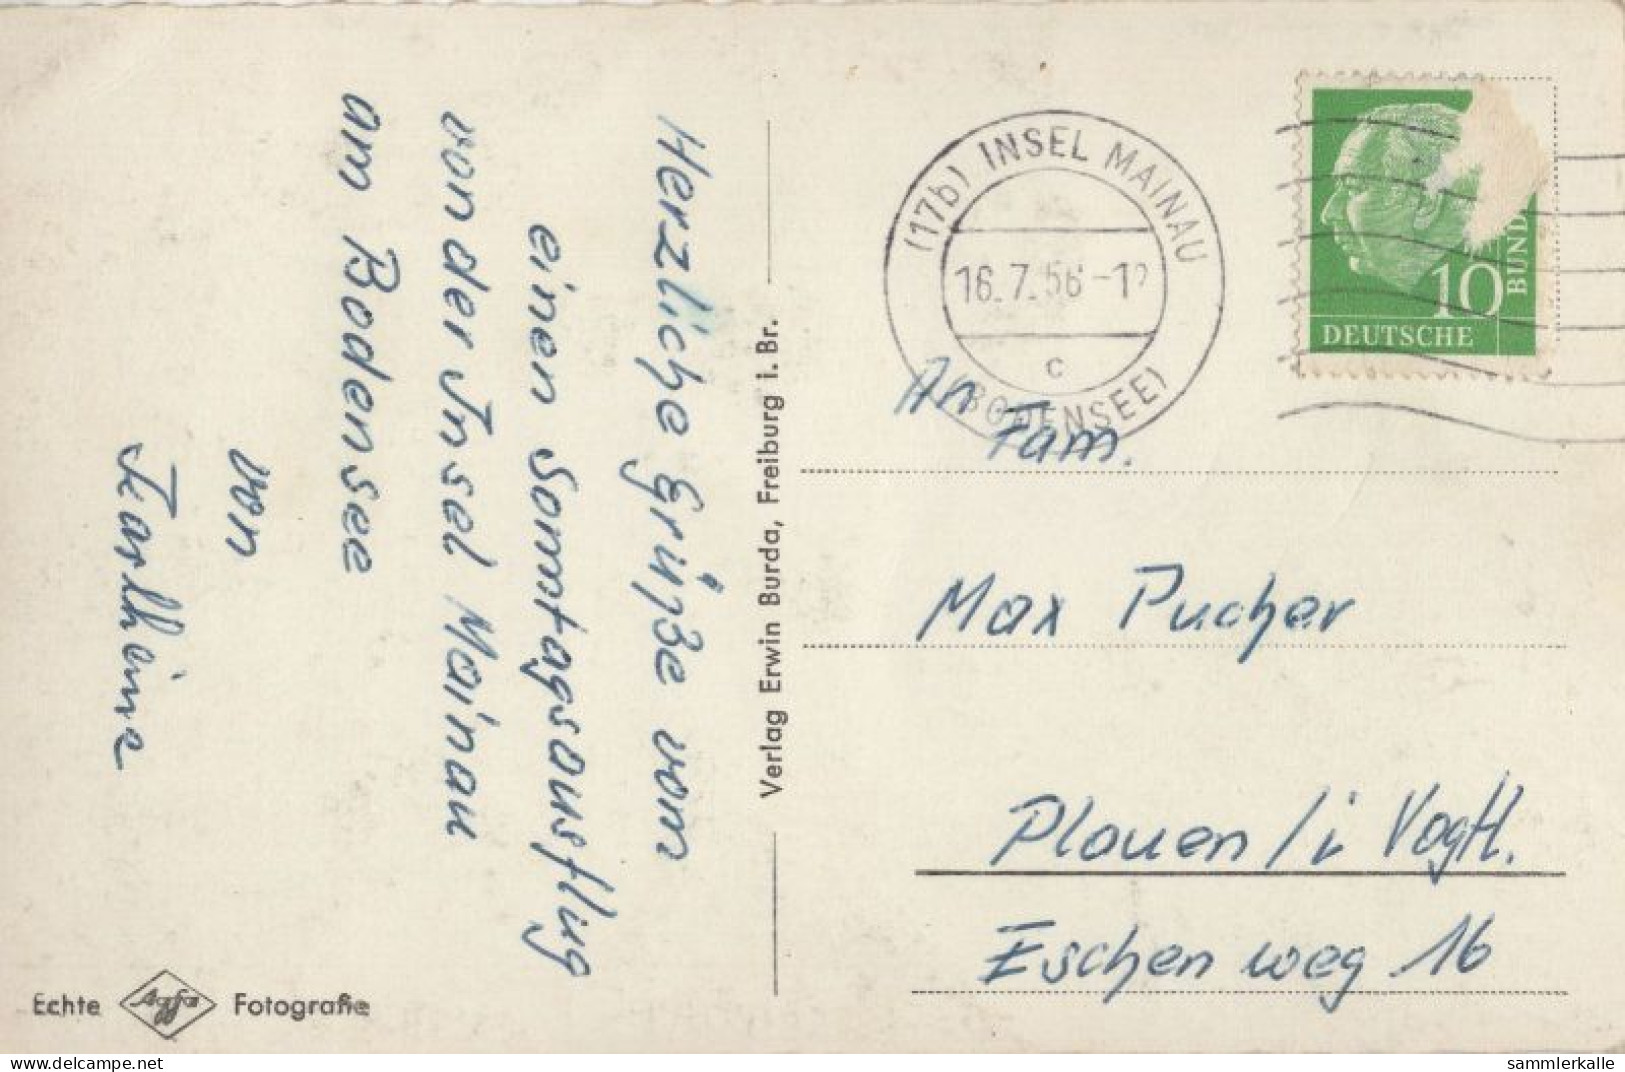 Herzliche Grüße vom
einen Sonntagsausflug
von der Insel Mainau
am Bodensee
von
Karlheinz
Echte Agfa Fotografie
Verlag Erwin Burda, Freiburg i. Br.
(17b) INSEL MAINAU
16.7.56-12
c
(BODENSEE)
10
BUND
DEUTSCHE
An
Fam.
Max Pucher
Plauen / i Vogtl.
Eschenweg 16
https://www.delcampe.net
sammlerkalle